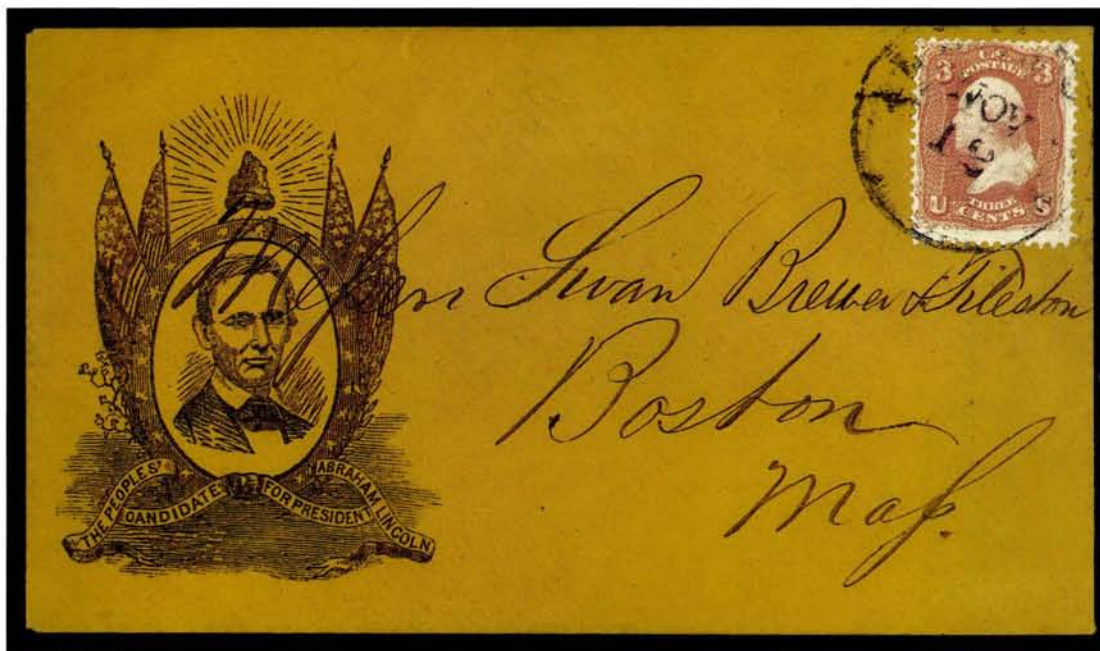 3 U.S. 3
POSTAGE
NOV
12
U THREE S
CENTS
Swan Brewer & Tileston
Boston
Mass.
THE PEOPLES' CANDIDATE FOR PRESIDENT ABRAHAM LINCOLN